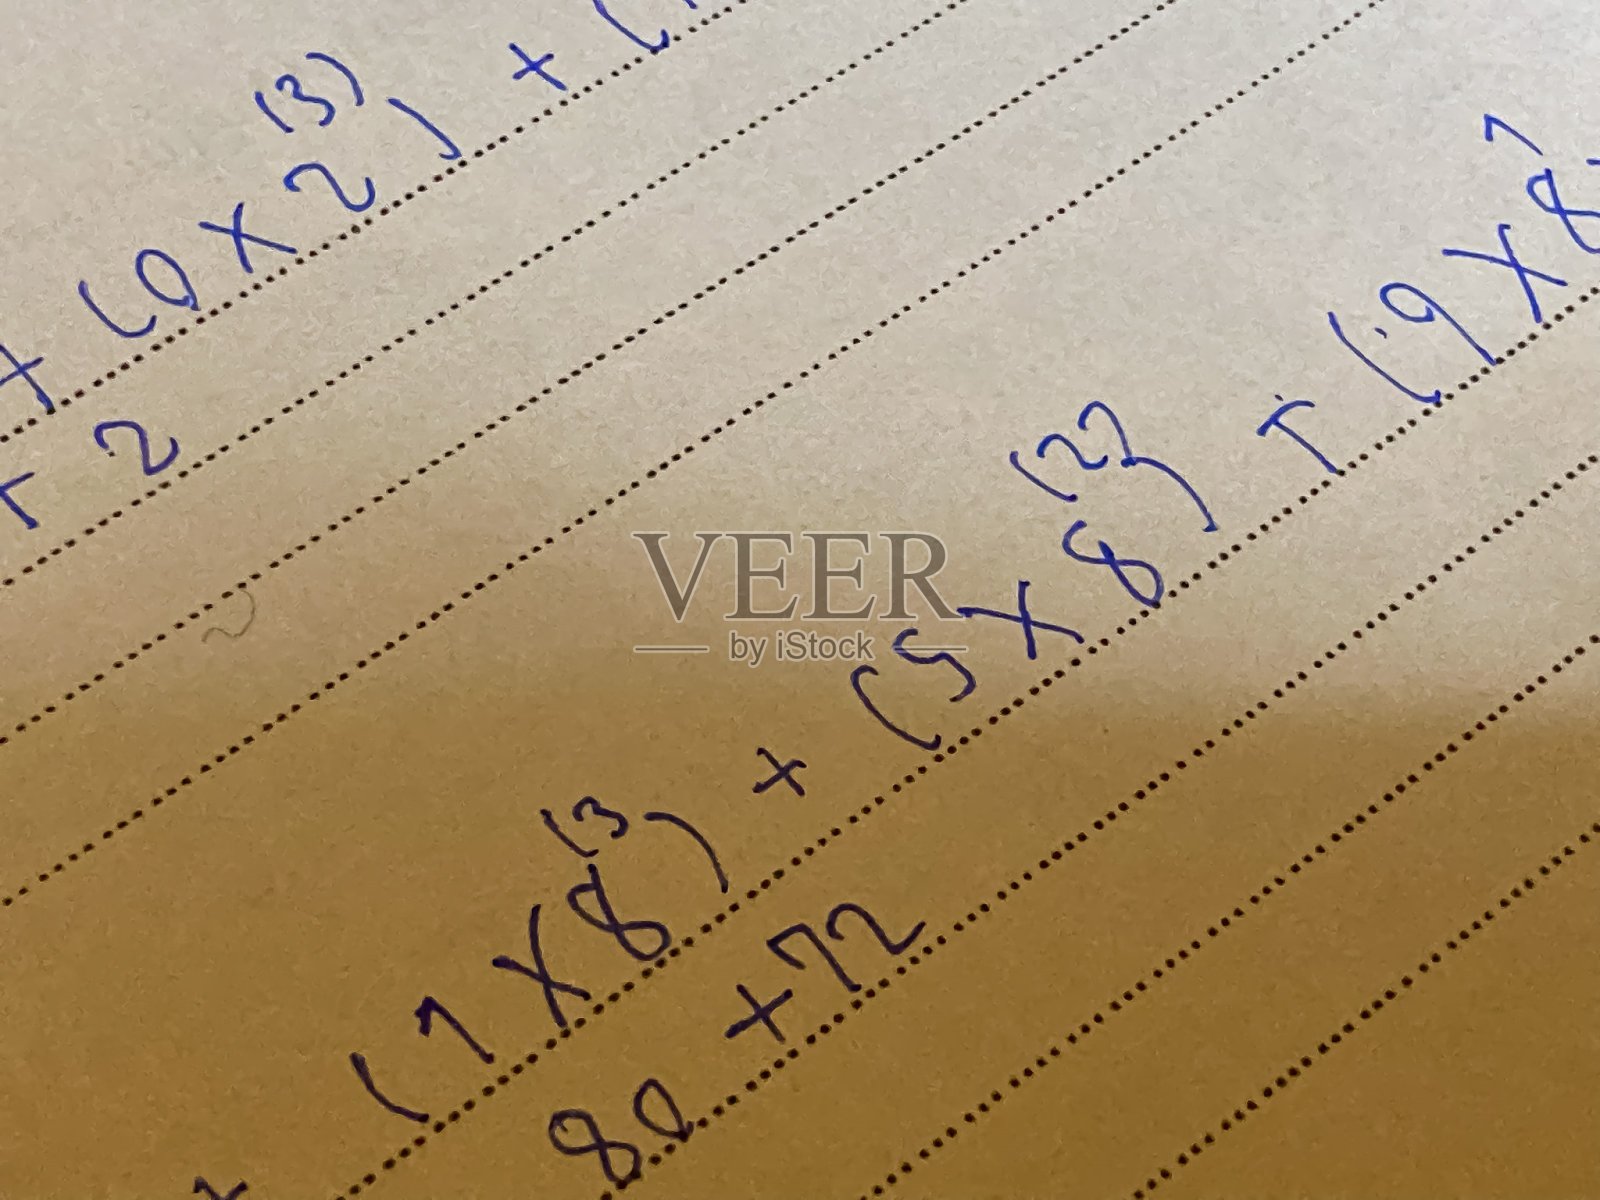 + (0 x 2⁽³⁾) + (
+ 2
(1 x 8⁽³⁾) + (5 x 8⁽²⁾) + (9 x 8¹
80 + 72
VEER
by iStock